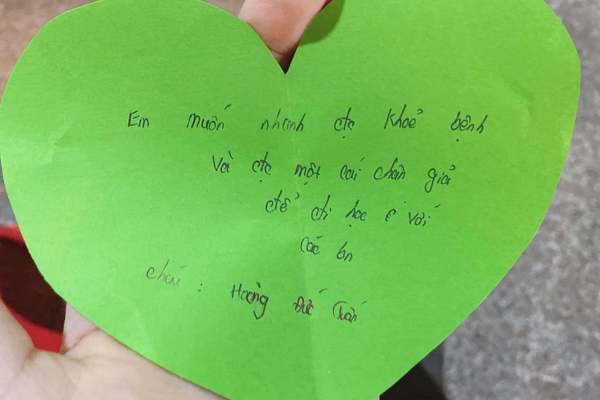 Em muốn nhanh đc khoẻ bệnh
Và đc một cái chân giả
để đi học với
các bn
cháu : Hoàng Đức